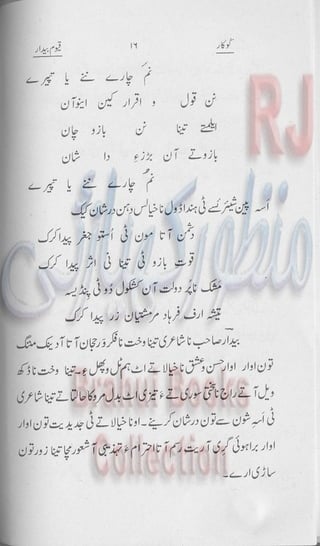 لوکار ۱۶ قیوم بیدار
نم چارے ننے یا تپیرے
نن قول و اقرار کین اینو آن
ایلمتے تینا نن بازو چان
بازو تے آن بڑزء دا شان
نم چارے ننے یا تپیرے
اُسہ پین شیئر ئسے ٹی ہنداڈول نا خیالس دہن درشان کیک
دشمن آتا مون ٹی اُستو جغر پیدا کرک
قوت بازو ٹی تینا نی اثر پیدا کرک
مشک ناپر دولت آن کشکول ڈوٹی پنڈیسہ
تیشہ ارف فرہاد مرمشتیان زر پیدا کرک
بیدار صاحب نا شاعری تینا وخت نا فکر و رجحان آتا آدینک مننگ
تون اوار اوار حسن و عشق نا خیالاتے اٹ ہم ٹل و پھل ءِ۔ تینا وخت نا ڈکھ
ویل آتے راج نا پختی سوری تے ءِ تیزی اٹ بدل مروکا حالتا تے تینا شاعری
ٹی اُسے شون سے تون درشان کرینے۔ اونا خیالاتے ٹی جدیدیت تون اوار
اوار براہوئی گری آ ریت رسم آتا احترام ءُ تہذیبی آ شعور بچا تینا زور تون
ساڑی ارے۔
RJ
منظور
Brahui Books
Collection